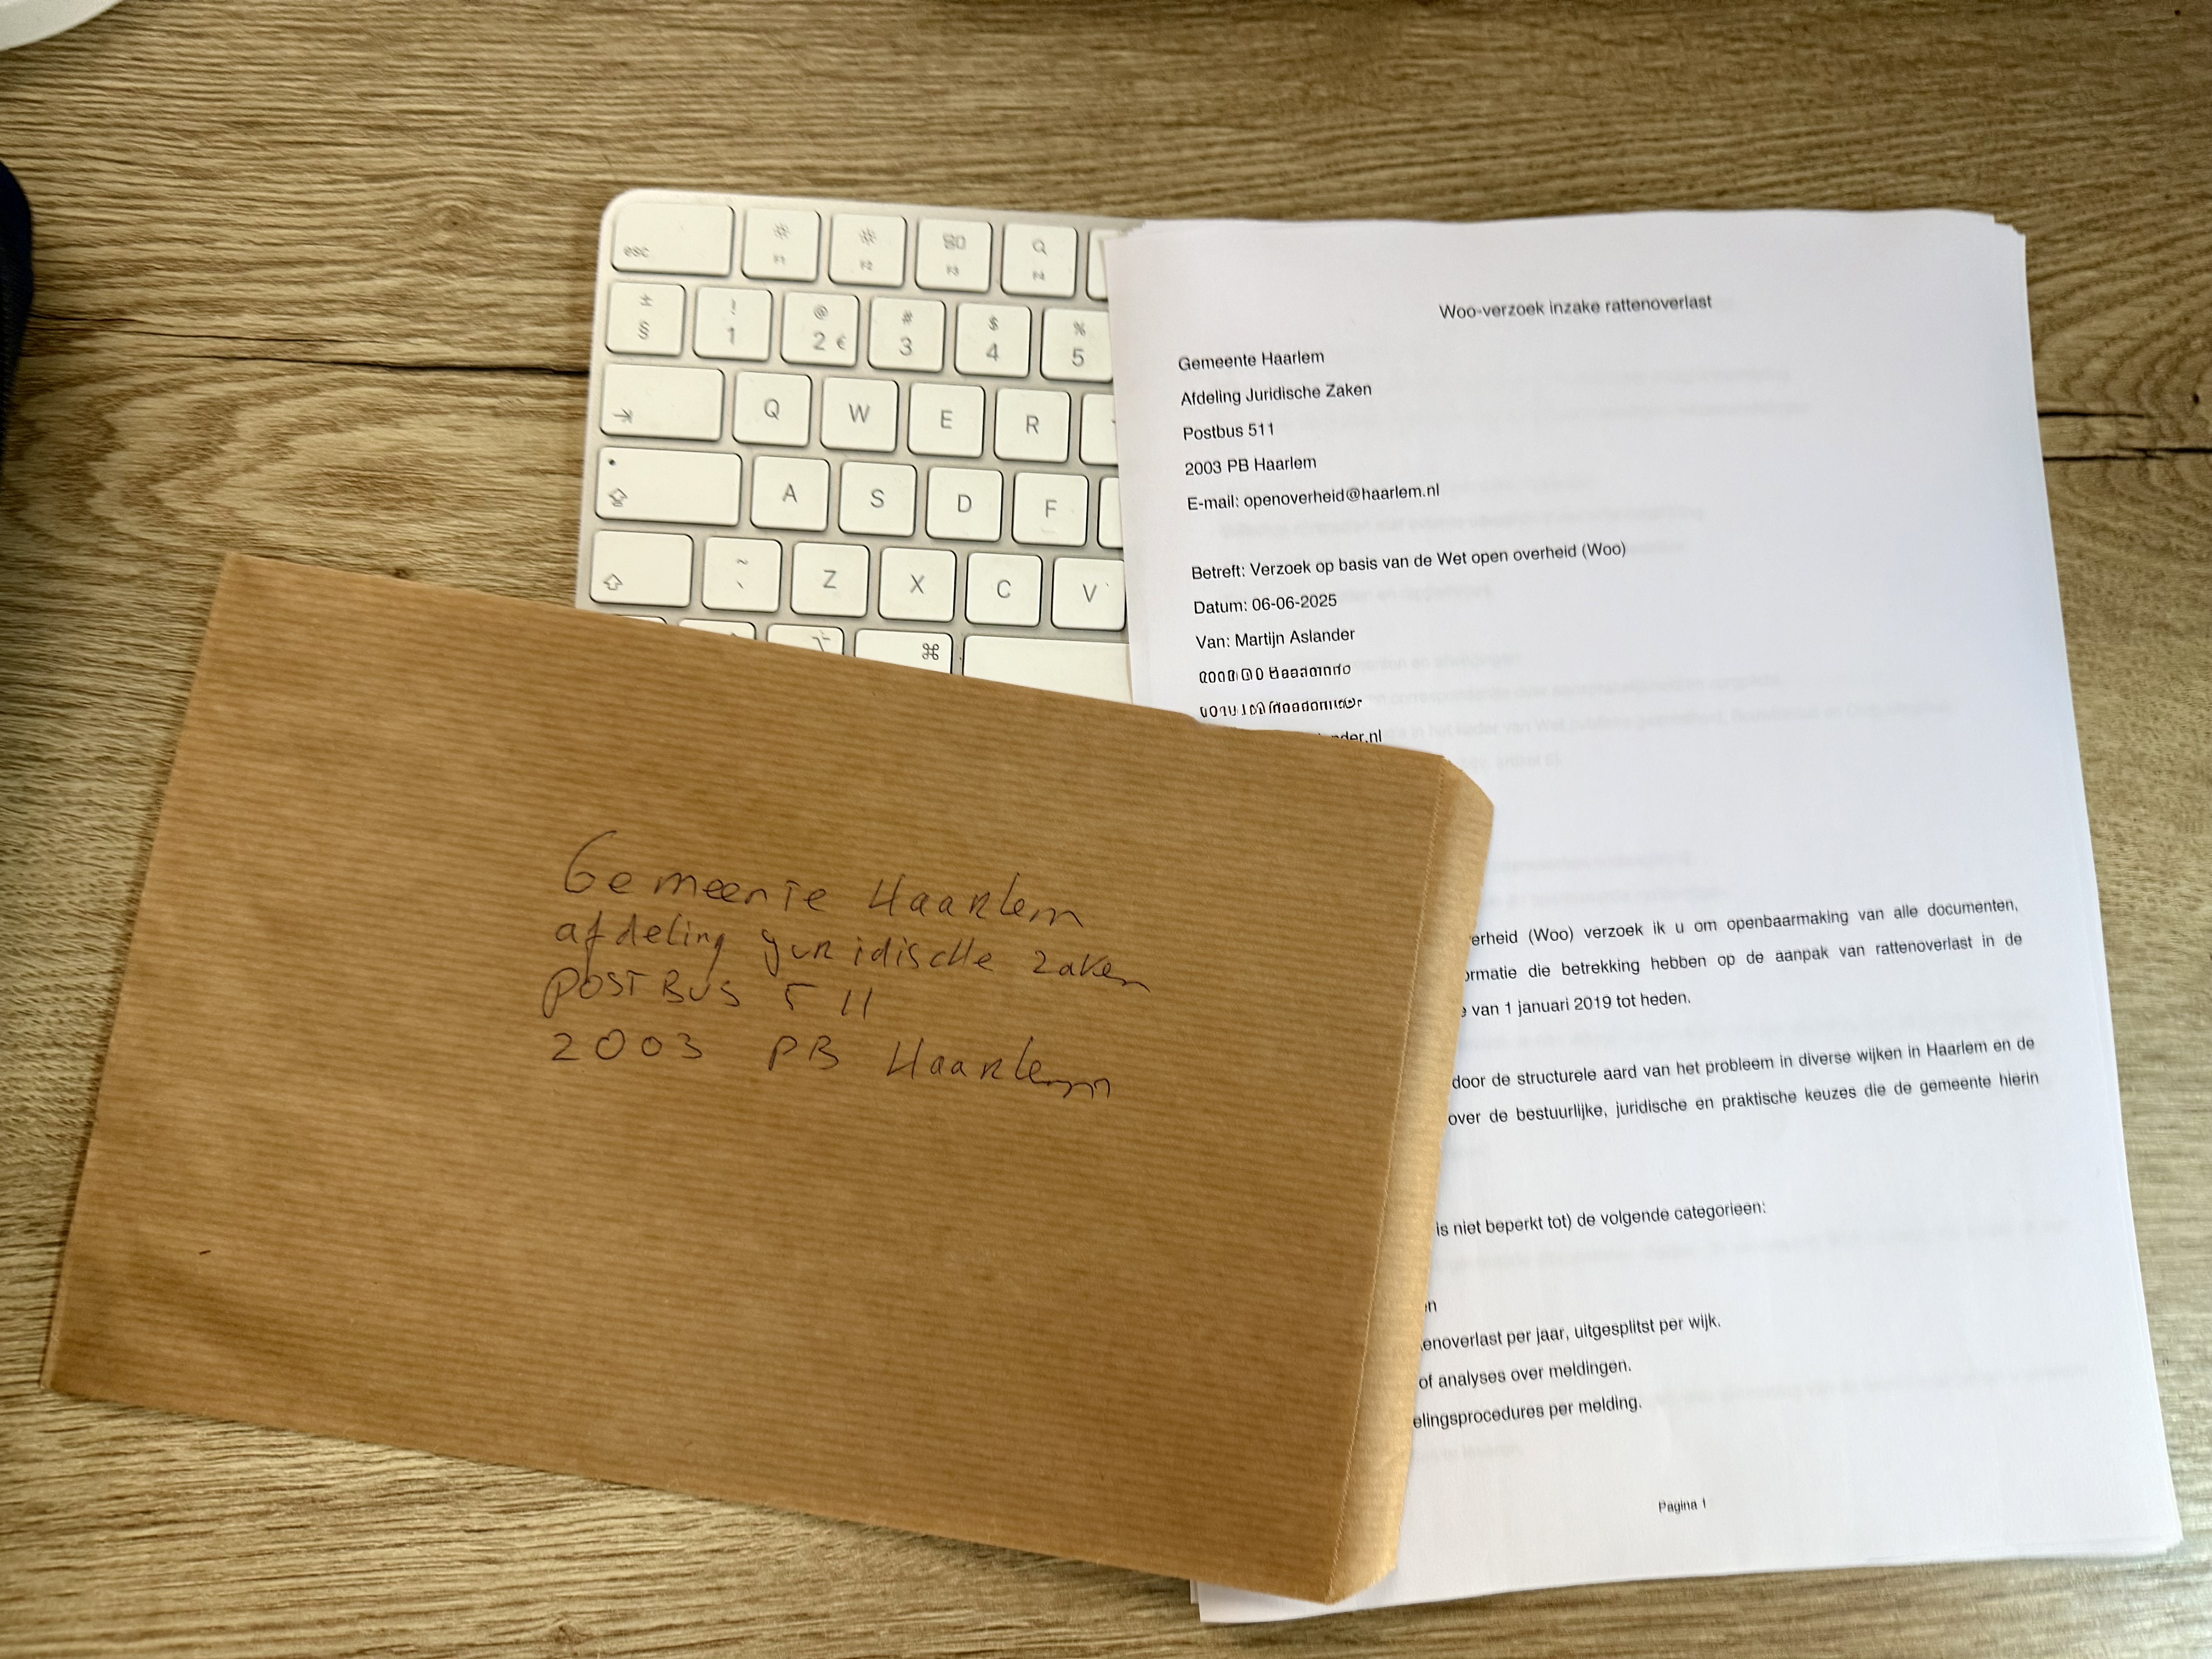 esc
F1
F2
F3
F4
±
§
!
1
@
2 €
#
3
$
4
%
5
Q
W
E
R
A
S
D
F
~
`
Z
X
C
V
⌘
Woo-verzoek inzake rattenoverlast
Gemeente Haarlem
Afdeling Juridische Zaken
Postbus 511
2003 PB Haarlem
E-mail: openoverheid@haarlem.nl
Betreft: Verzoek op basis van de Wet open overheid (Woo)
Datum: 06-06-2025
Van: Martijn Aslander
nder.nl
erheid (Woo) verzoek ik u om openbaarmaking van alle documenten,
ormatie die betrekking hebben op de aanpak van rattenoverlast in de
van 1 januari 2019 tot heden.
door de structurele aard van het probleem in diverse wijken in Haarlem en de
over de bestuurlijke, juridische en praktische keuzes die de gemeente hierin
is niet beperkt tot) de volgende categorieën:
en
enoverlast per jaar, uitgesplitst per wijk.
of analyses over meldingen.
elingsprocedures per melding.
Pagina 1
Gemeente Haarlem
afdeling juridische zaken
POSTBUS 511
2003 PB Haarlem